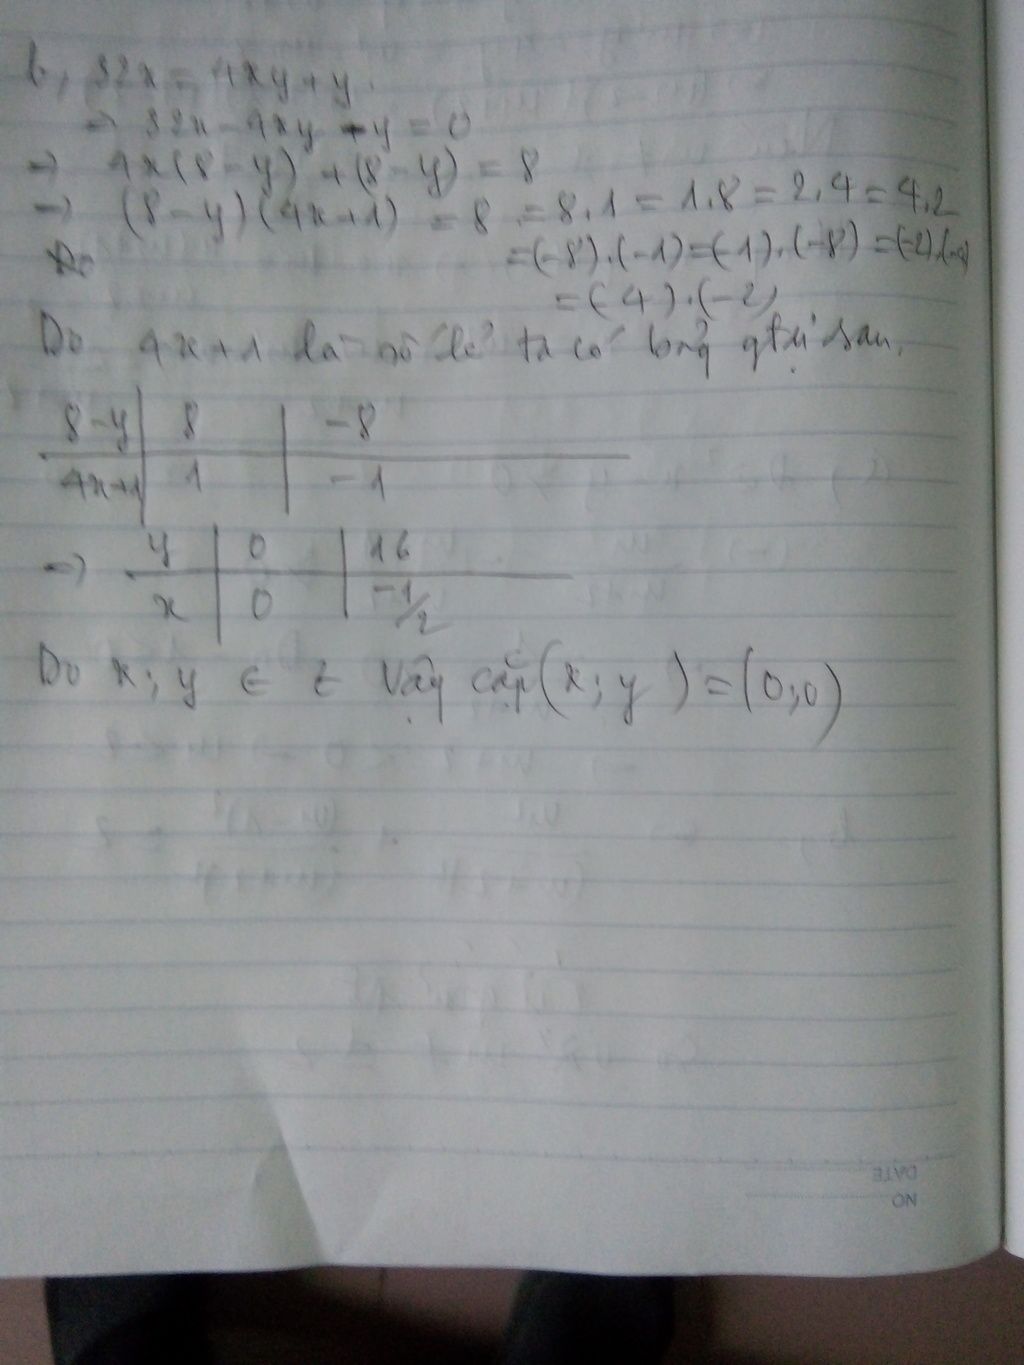 b, 32x = 4xy + y.
→ 32x - 4xy - y = 0
→ 4x(8-y) + (8-y) = 8
→ (8-y)(4x+1) = 8 = 8.1 = 1.8 = 2.4 = 4.2
= (-8).(-1) = (-1).(-8) = (-2).(-4)
= (-4).(-2)
Do 4x+1 là số lẻ ta có bảng gtrị sau.
8-y | 8 | -8
4x+1 | 1 | -1
→ y | 0 | 16
x | 0 | -1/2
Do x; y ∈ Z Vậy cặp (x; y) = (0;0)
DATE
NO